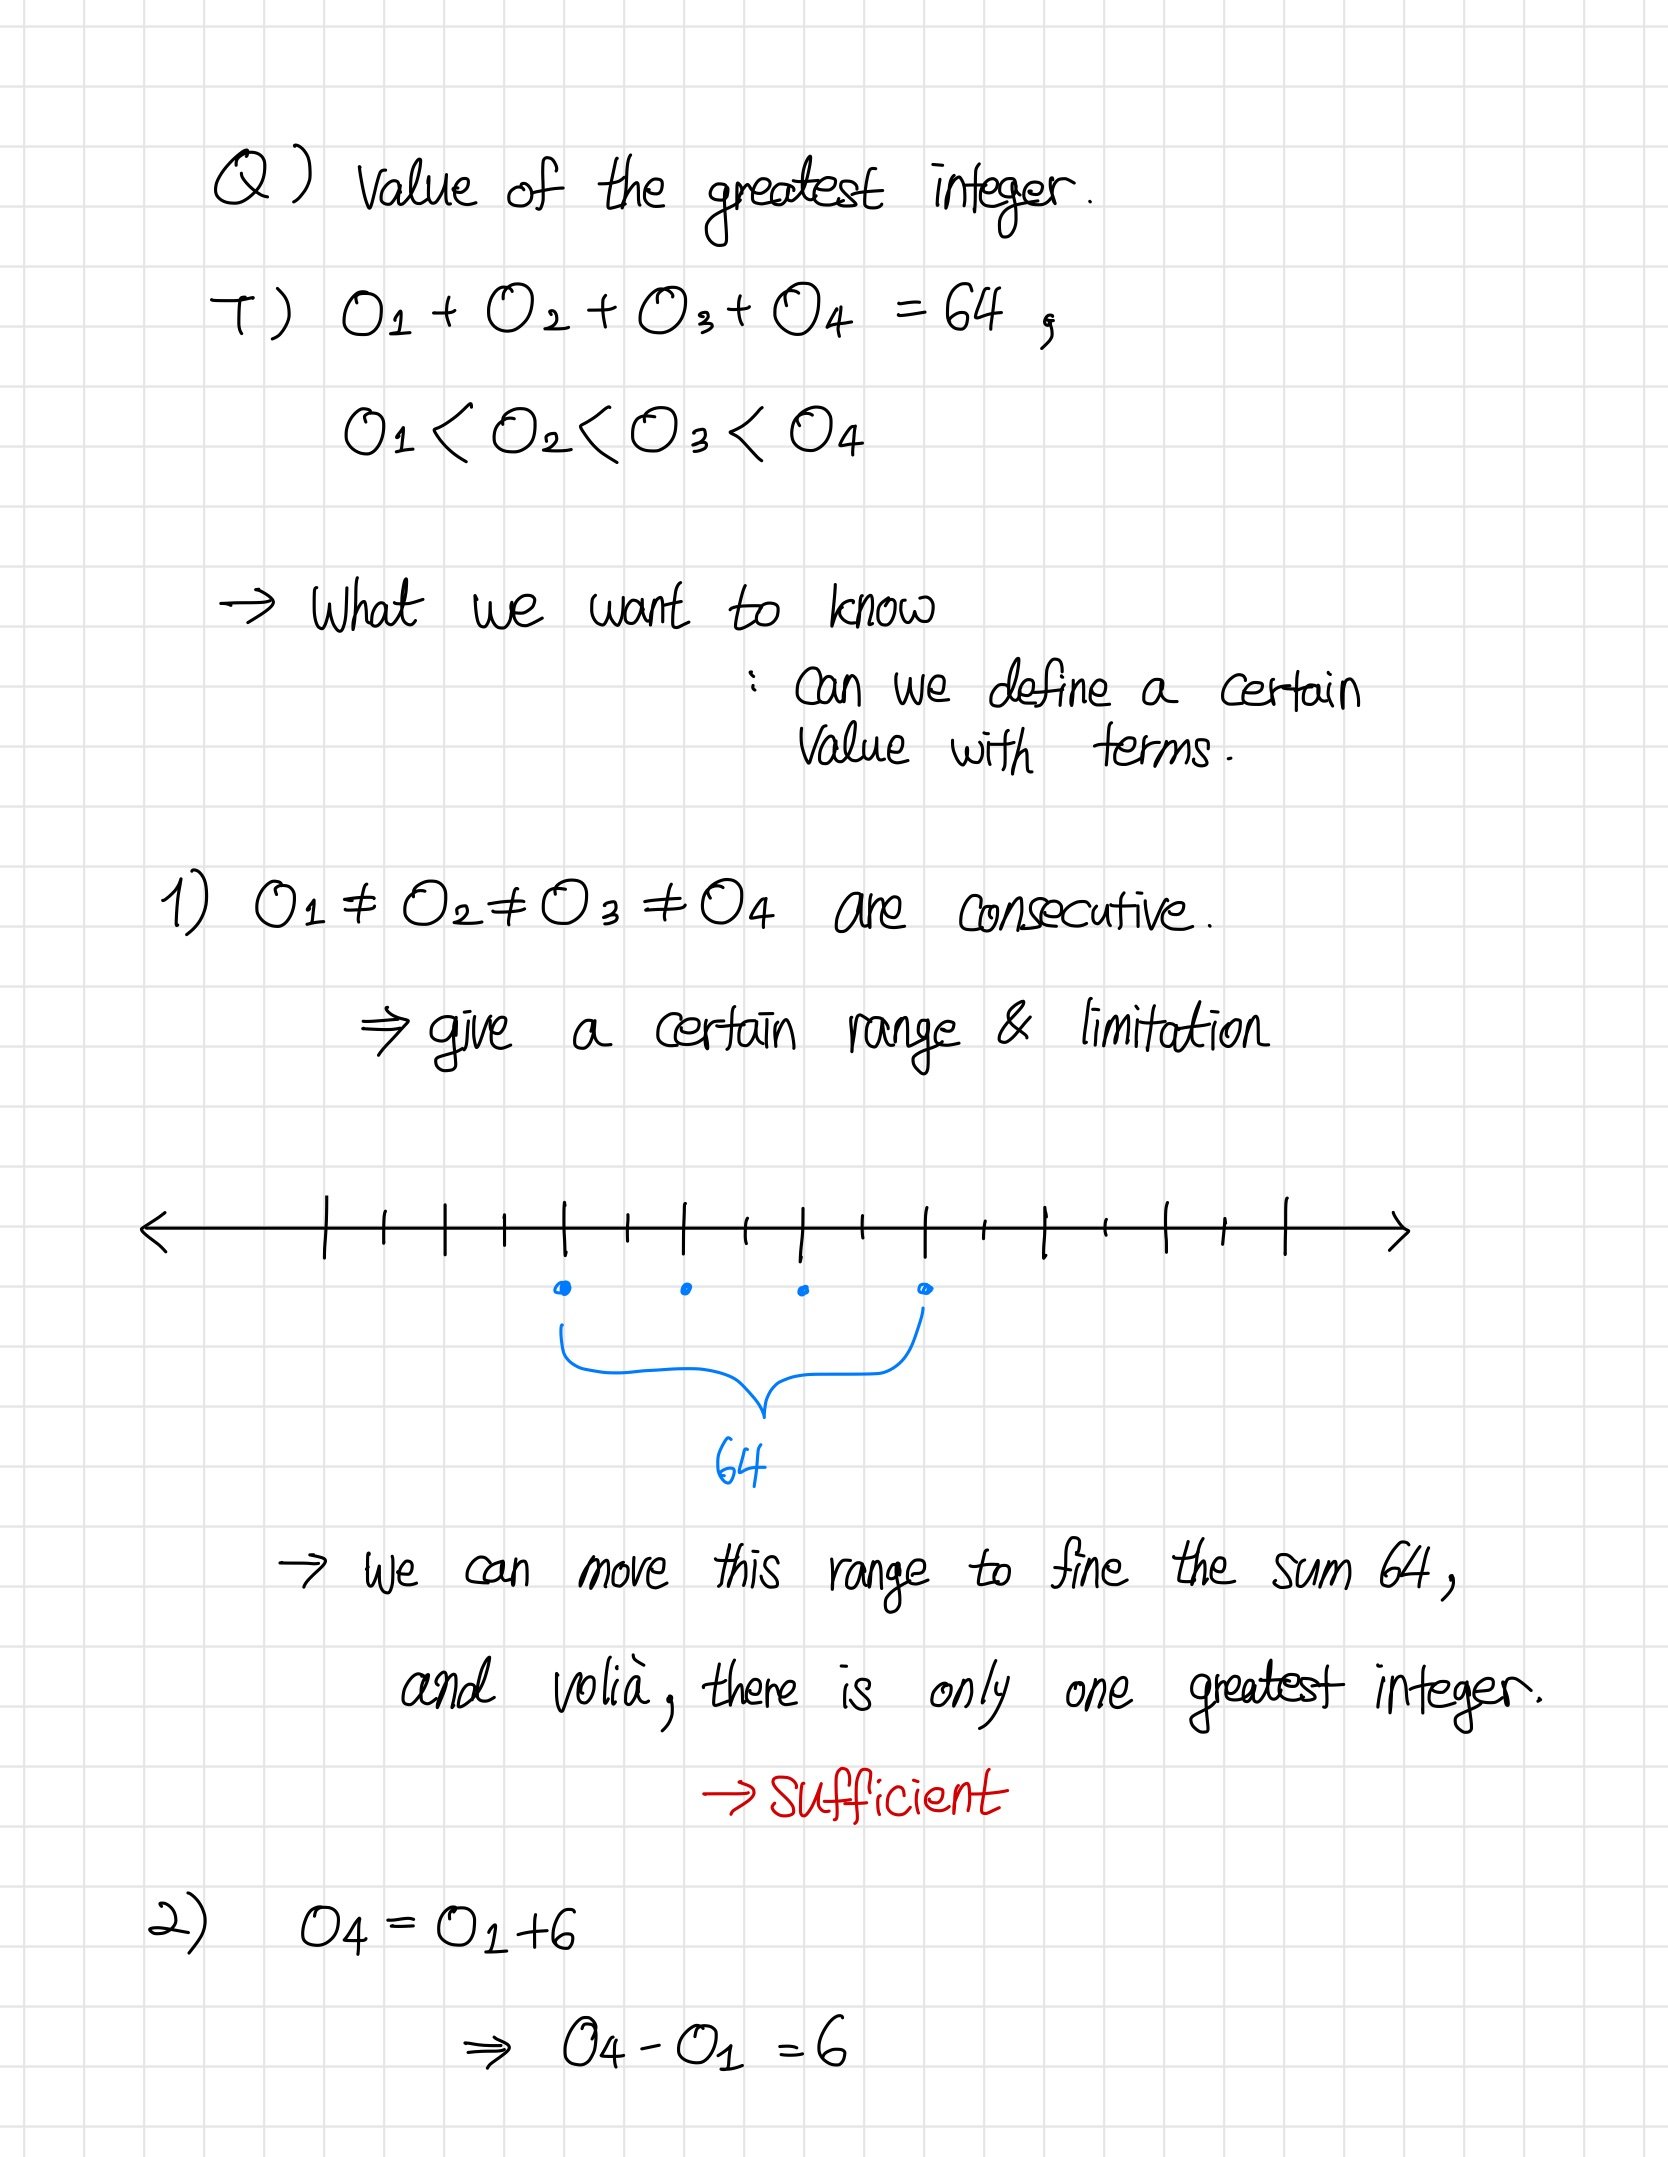 Q) Value of the greatest integer.
T) O₁ + O₂ + O₃ + O₄ = 64,
O₁ < O₂ < O₃ < O₄
→ What we want to know
: can we define a certain
value with terms.
1) O₁ ≠ O₂ ≠ O₃ ≠ O₄ are consecutive.
⇒ give a certain range & limitation
64
→ we can move this range to fine the sum 64,
and volià, there is only one greatest integer.
→ sufficient
2) O₄ = O₁ + 6
⇒ O₄ - O₁ = 6